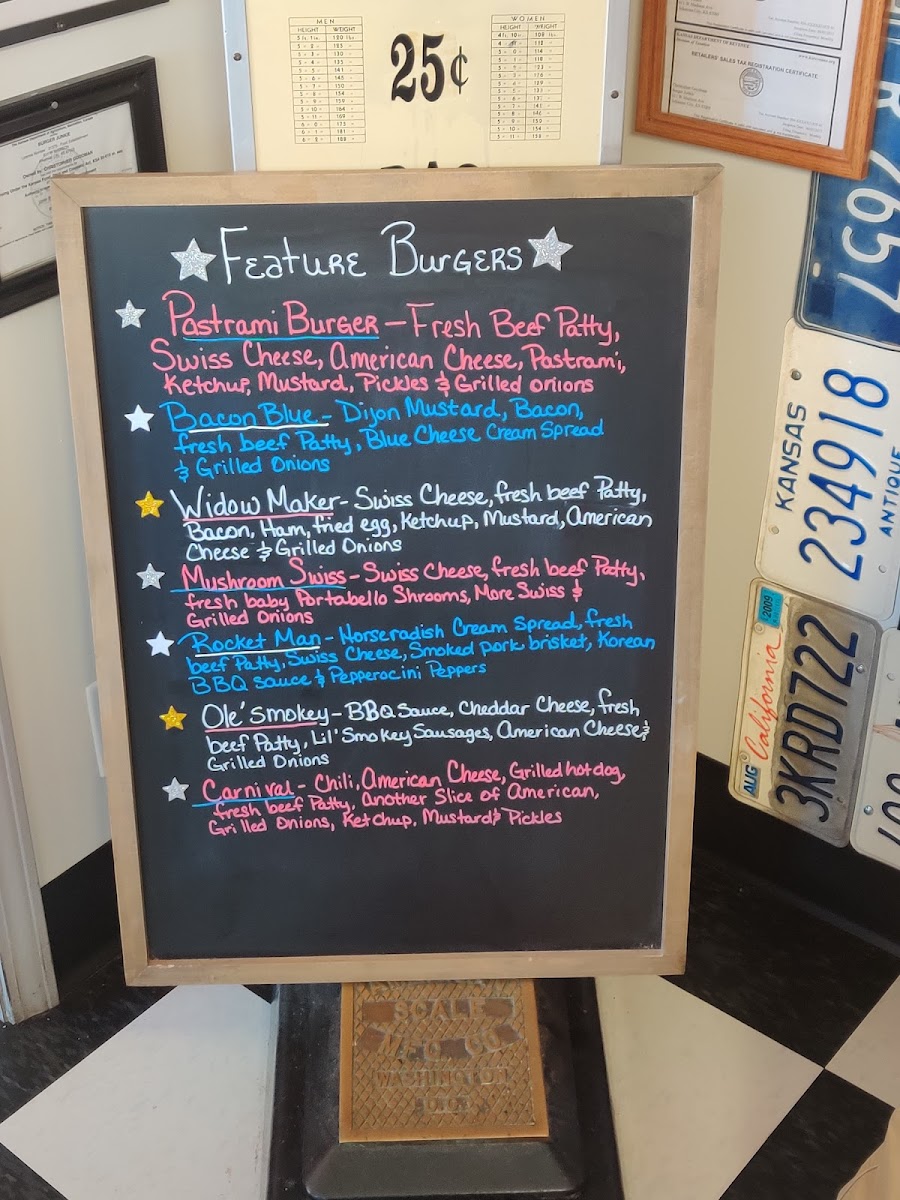 MEN
HEIGHT WEIGHT
WOMEN
HEIGHT WEIGHT
25¢
KANSAS DEPARTMENT OF REVENUE
RETAILERS' SALES TAX REGISTRATION CERTIFICATE
BURGER JUNKIE
Feature Burgers
Pastrami Burger - Fresh Beef Patty,
Swiss Cheese, American Cheese, Pastrami,
Ketchup, Mustard, Pickles & Grilled onions
Bacon Blue - Dijon Mustard, Bacon,
fresh beef Patty, Blue Cheese Cream Spread
& Grilled Onions
Widow Maker - Swiss Cheese, fresh beef Patty,
Bacon, Ham, fried egg, Ketchup, Mustard, American
Cheese & Grilled Onions
Mushroom Swiss - Swiss Cheese, fresh beef Patty,
fresh baby Portabello Shrooms, More Swiss &
Grilled Onions
Rocket Man - Horseradish Cream Spread, fresh
beef Patty, Swiss Cheese, Smoked pork brisket, Korean
BBQ Sauce & Pepperocini Peppers
Ole' Smokey - BBQ Sauce, Cheddar Cheese, fresh
beef Patty, Lil' Smokey Sausages, American Cheese &
Grilled Onions
Carnival - Chili, American Cheese, Grilled hotdog,
fresh beef Patty, Another Slice of American,
Grilled Onions, Ketchup, Mustard & Pickles
KANSAS
234918
ANTIQUE
AUG California 2009
3KRD722
SCALE
MFG CO
WASHINGTON